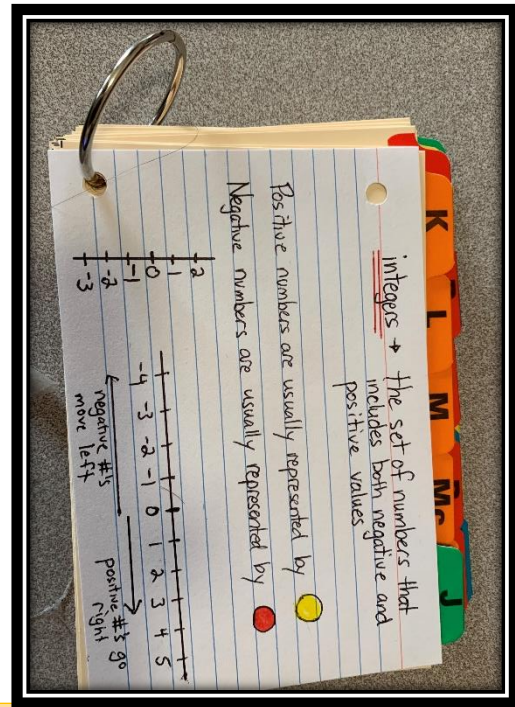 K L M Mc J
integers → the set of numbers that
includes both negative and
positive values
Positive numbers are usually represented by
Negative numbers are usually represented by
2
1
0
-1
-2
-3
-4 -3 -2 -1 0 1 2 3 4 5
negative #'s
move left
positive #'s go
right